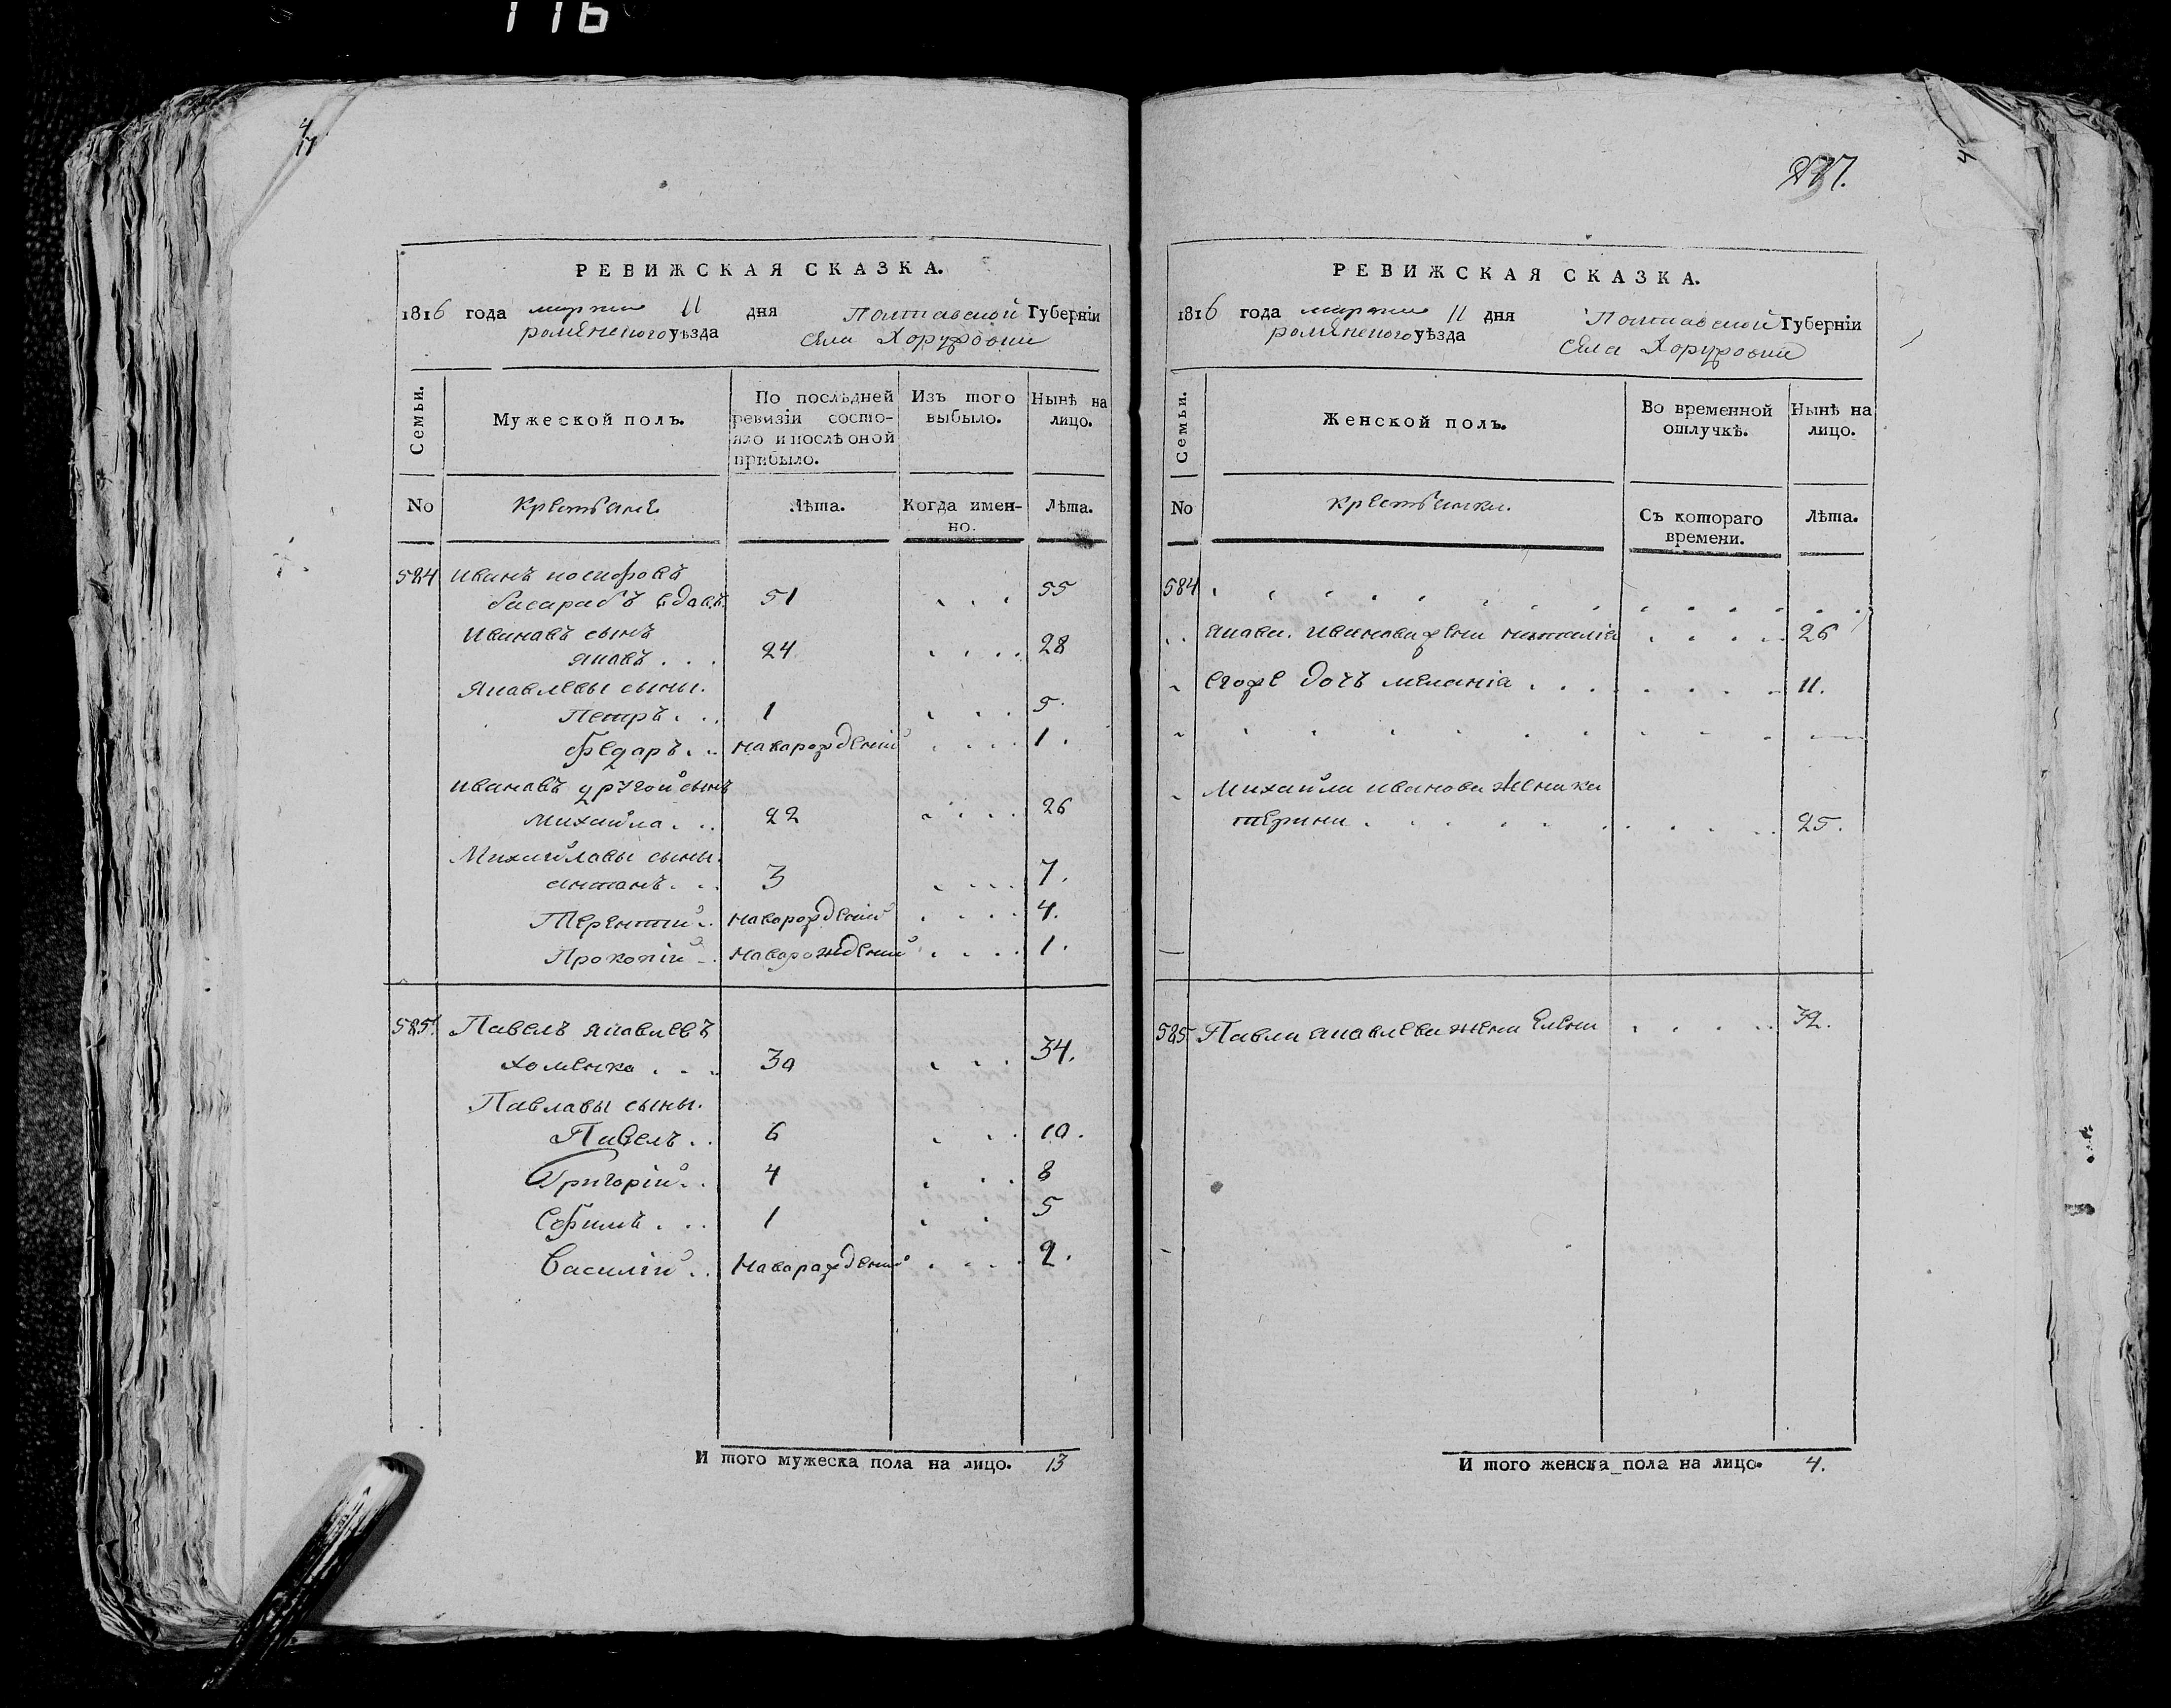 116
РЕВИЖСКАЯ СКАЗКА.
1816 года марта 11 дня Полтавской Губерніи
роменского уѣзда села Хоружовки
Семьи.
Мужеской полъ.
По послѣдней ревизіи состо-
яло и послѣ оной
прибыло.
Изъ того
выбыло.
Нынѣ на
лицо.
No Крестьяне Лѣта. Когда имен-
но. Лѣта.
584 Иванъ
басарабъ вдавъ 51 55
Ивановъ сынъ
яковъ 24 28
Яковлевы сыны.
Петръ 1 5.
Федаръ новорожденій 1.
Ивановъ другой сынъ
Михайла 22 26
Михайловы сыны.
антонъ 3 7.
Терентий новорожденій 4.
Прокопій новорожденій 1.
585. Павелъ яковлевъ
хоменко 30 34.
Павловы сыны.
Павелъ 6 10.
Григорій 4 8
Ефимъ 1 5
Василій новорожденій 2.
И того мужеска пола на лицо. 13
РЕВИЖСКАЯ СКАЗКА.
1816 года марта 11 дня Полтавской Губерніи
роменского уѣзда села Хоружовки
Семьи.
Женской полъ.
Во временной
отлучкѣ.
Нынѣ на
лицо.
No крестьянки. Съ котораго
времени. Лѣта.
584
якова ивановажена наталія 26
егоже дочь меланія 11.
Михайла иванова жена ка
терина 25.
585 Павла яковлева жена Елена 32.
И того женска пола на лицо. 4.